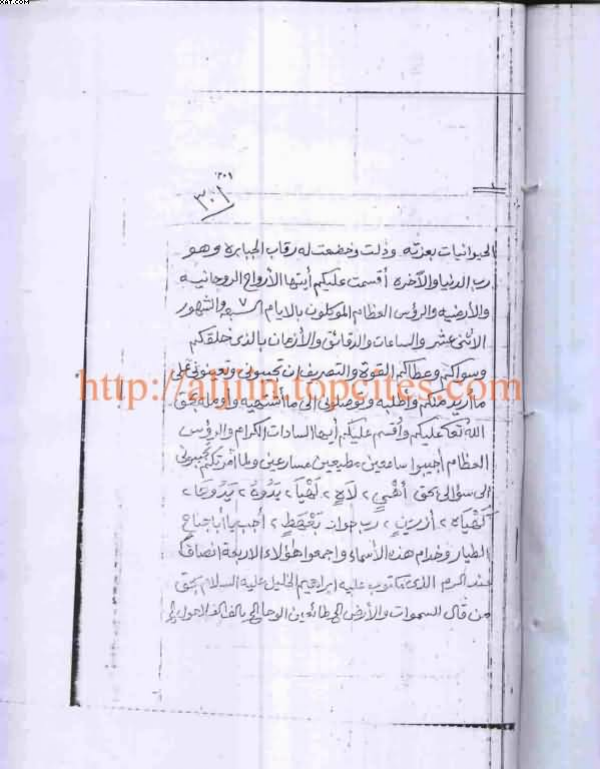 xat.com
٣٠١
٣٠١
الحيوانيات بعزته وذلت وخضعت له رقاب الجبابره وهو
رب الدنيا والآخره أقسمت عليكم أيتها الأرواح الروحانيه
والأرضيه والرؤس العظام الموكلون بالايام السبع ٧ والشهور
الاثنى عشر والساعات والدقائق والأزمان بالذى خلقكم
وسواكم وعطاكم القوة والتصريف ان تجيبونى وتعينونى على
http://aljiin.topcites.com
ما أريد منكم وأطلبه وتوصلونى الى ما أشتهيه وأرومه بحق
الله تعا عليكم وأقسم عليكم أيها السادات الكرام والرؤس
العظام أجيبوا سامعين مطيعين مسارعين ولما أمرتكم تجيبونى
الى سؤالى بحق أهْيٍ ٢ لاهٍ ٢ لَهْيَا ٢ يَدُوهُ ٢ يَدُوعَا ٢
كَهْيَاه ٢ أزرين ٢ رب جواند بَعْهَطٍ ٢ أجب يا أبا جناح
الطيار وخدام هذه الأسماء واجمعوا هؤلاء الاربعة انصافا
عند الحرم الذى مكتوب عليه إبراهيم الخليل عليه السلام بحق
من قال للسموات والأرض طائعين الوحا بالف الف لاحول